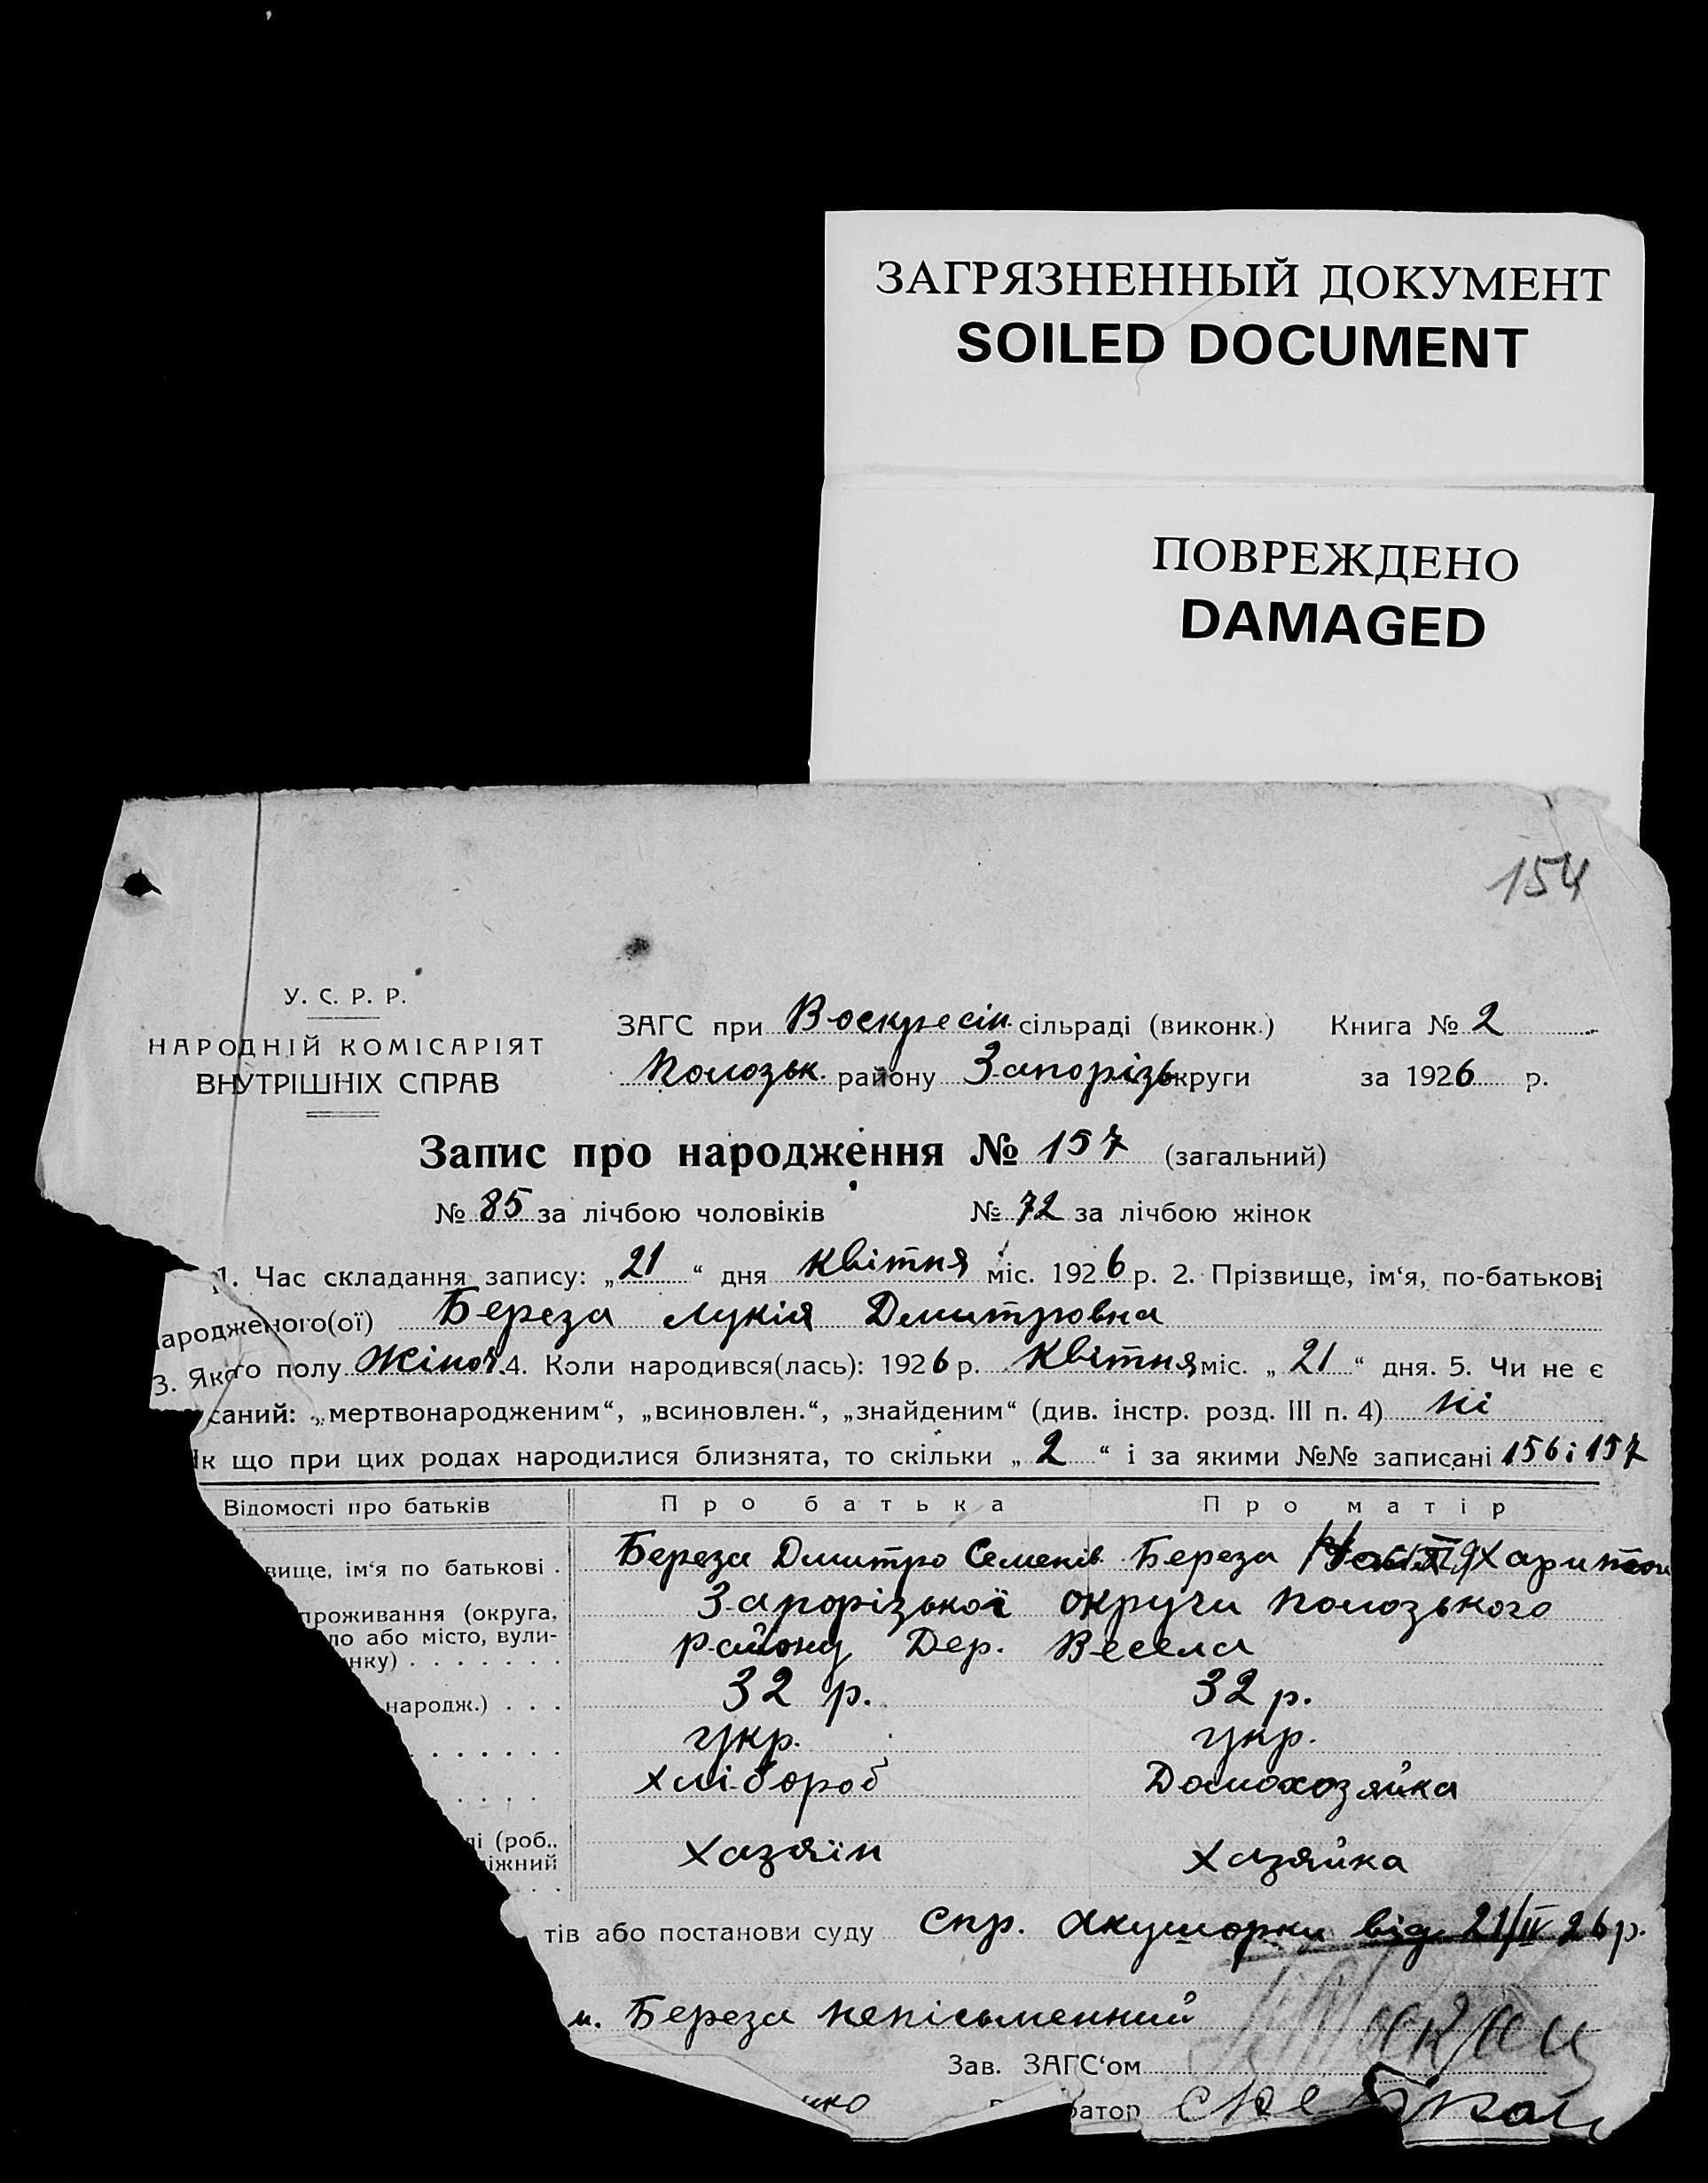 ЗАГРЯЗНЕННЫЙ ДОКУМЕНТ
SOILED DOCUMENT
ПОВРЕЖДЕНО
DAMAGED
154
У. С. Р. Р.
НАРОДНІЙ КОМІСАРІЯТ
ВНУТРІШНІХ СПРАВ
ЗАГС при Воскресін. сільраді (виконк.) Книга № 2
Полозьк. району Запорізь округи за 1926 р.
Запис про народження № 157 (загальний)
№ 85 за лічбою чоловіків № 72 за лічбою жінок
1. Час складання запису: „21“ дня квітня міс. 1926 р. 2. Прізвище, ім‘я, по-батькові
ародженого(ої) Береза Лукія Дмитровна
3. Якого полу Жіноч. 4. Коли народився(лась): 1926 р. Квітня міс. „21“ дня. 5. Чи не є
саний: „мертвонародженим“, „всиновлен.“, „знайденим“ (див. інстр. розд. III п. 4) ні
Як що при цих родах народилися близнята, то скільки „2“ і за якими №№ записані 156 і 157
Відомості про батьків Про батька Про матір
вище, ім‘я по батькові . Береза Дмитро Семенів. Береза Харитон
проживання (округа, Запорізької округи Полозького
ло або місто, вули-
нку) . . . . . . . району Дер. Весела
народж.) . . . 32 р. 32 р.
укр. укр.
хлібороб Домохозяйка
лі (роб..
іжний хазяїн хазяйка
тів або постанови суду Спр. Акушорки від 21/IV 26 р.
м. Береза непісьменний
Зав. ЗАГС‘ом
нко атор